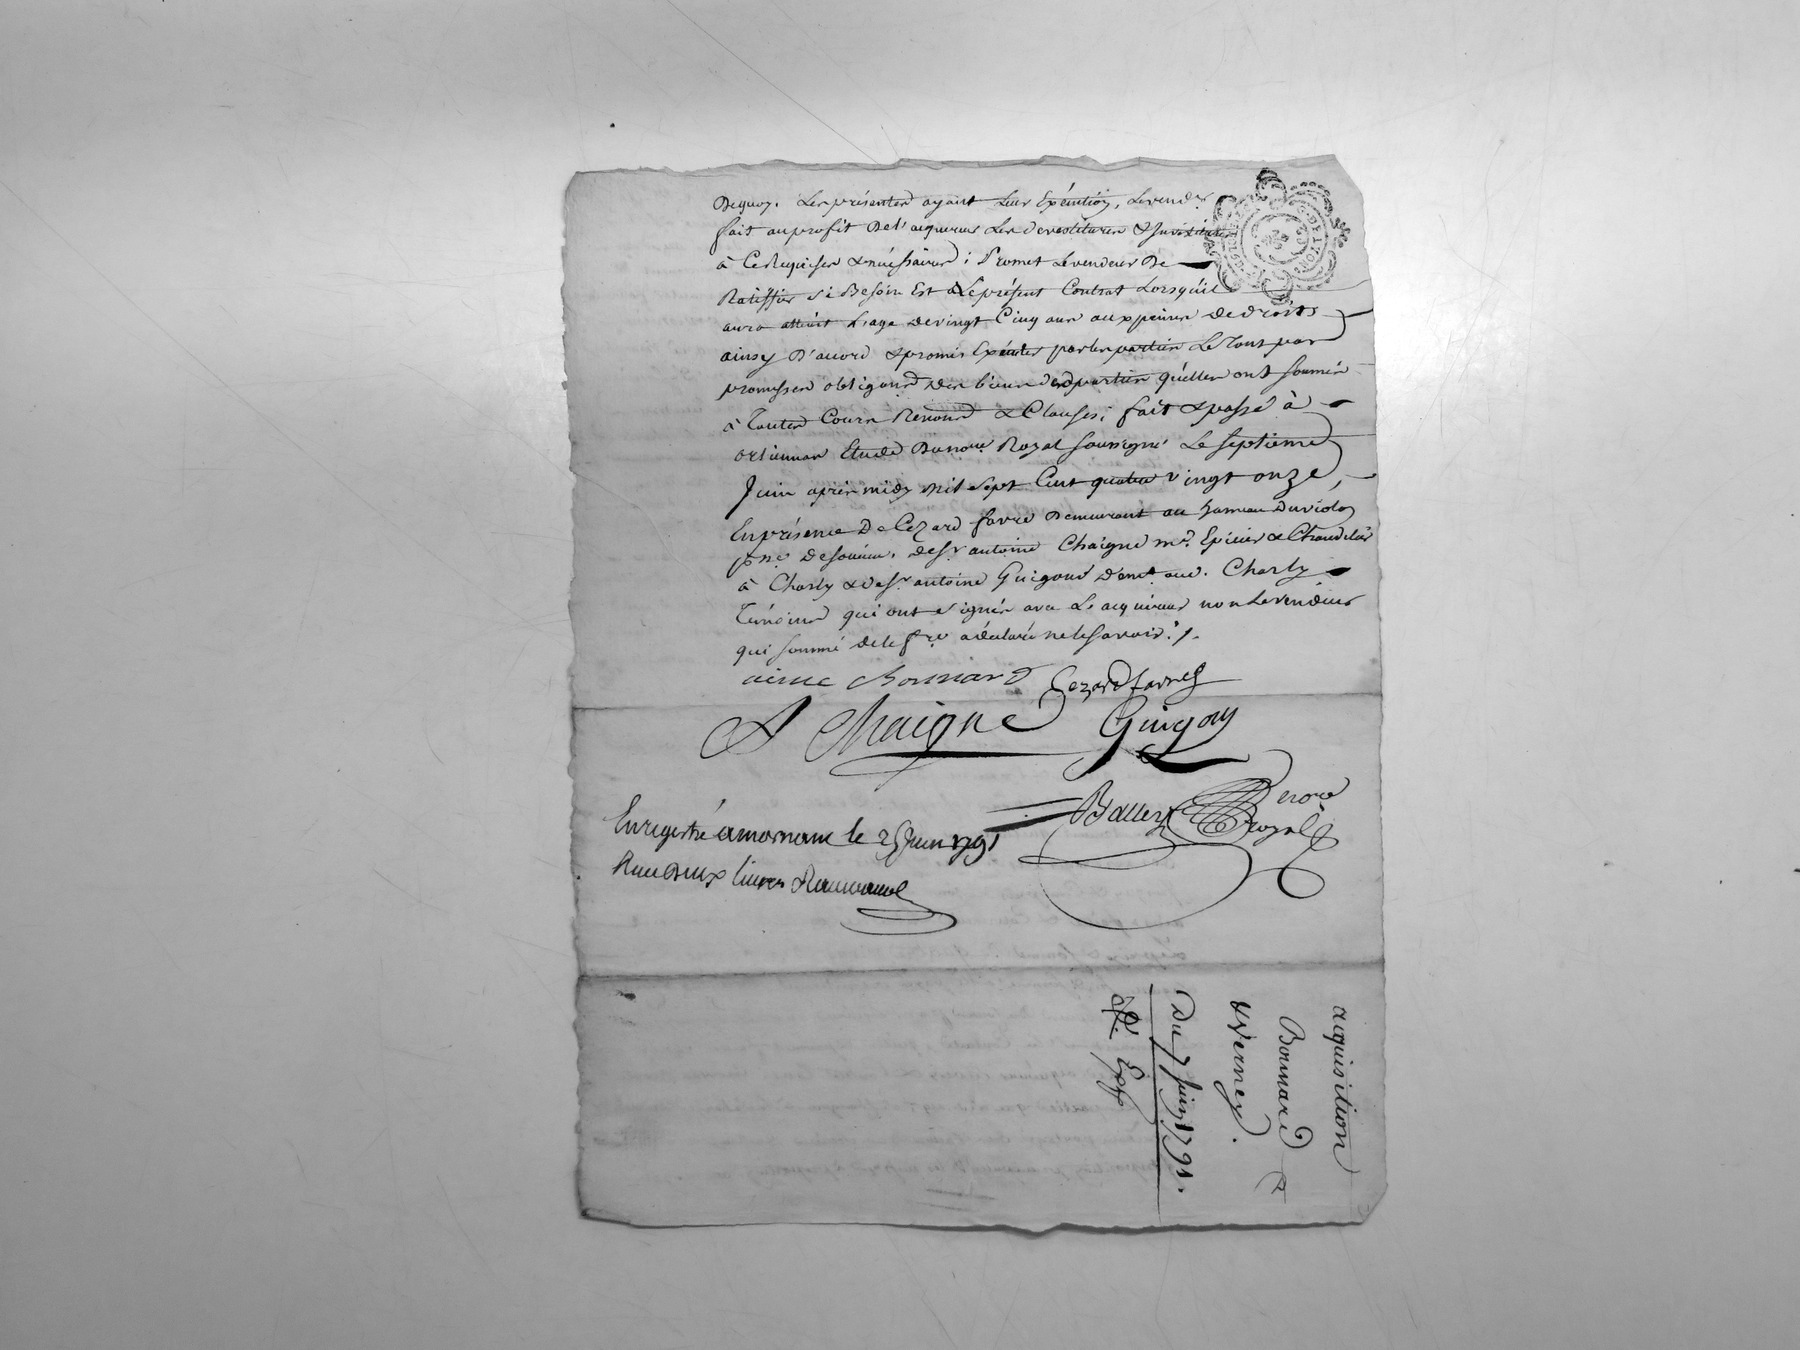 Dequoy. Les présentes ayant Leur Exécution, Levendr
fait auprofit De l'aquereur Les devestitures & Investitures
à Ce Requises & nécéssaires; Promet Levendeur De
Ratiffier si Besoin Est Leprésent Contrat Lorsquil
aura atteint L'age devingt Cinq ans aux peines dedroits
ainsy D'accord & promis Exécuter parles parties Le Tout par
promesses obligaons des biens desdparties quélles ont soumis
à Toutes Cours Renons & Clauses; fait & passé à
orliennas Etude Dunore Royal soussigné Le septieme
Juin après midy mil sept Cent quatre vingt onze,
Enprésence De Cezard favre Demeurant au hameau Duviolon
psse desoucieu, des.r antoine Chaigne md. Epicier & Chandelier
à Charly & des.r antoine Guigoud demt aud. Charly
Témoins qui ont signés avec Le acquéreur non Levendeur
qui sommé delefre a déclaré nelesavoir ./.
aimé Bonnard Cezard favre
A Chaigne Guigou
Ballet nore royal
Enregistré amornant le 25 Juin 1791
Recu deux livres
acquisition
Bonnard
& Verney.
Du 7 Juin 1791.
Exp